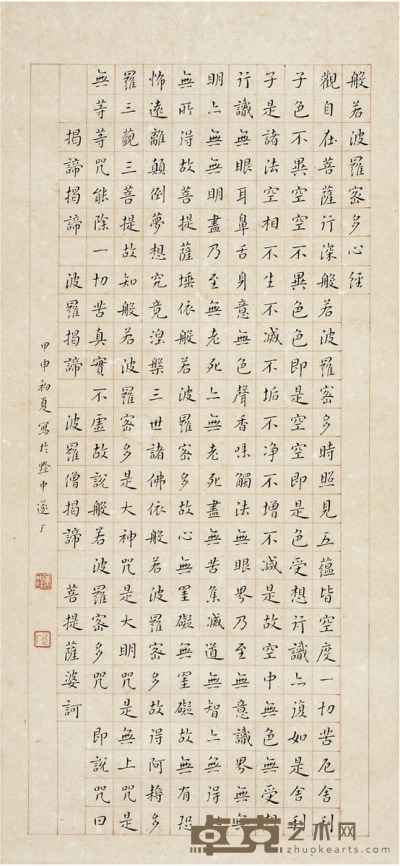 般若波羅密多心經
觀自在菩薩行深般若波羅密多時照見五蘊皆空度一切苦厄舍利
子色不異空空不異色色即是空空即是色受想行識亦復如是舍利
子是諸法空相不生不滅不垢不净不增不減是故空中無色無受想
行識無眼耳鼻舌身意無色聲香味觸法無眼界乃至無意識界無無
明亦無無明盡乃至無老死亦無老死盡無苦集滅道無智亦無得
無所得故菩提薩埵依般若波羅密多故心無罣礙無罣礙故無有恐
怖遠離顛倒夢想究竟湼槃三世諸佛依故般若波羅密多故得阿耨多
羅三藐三菩提故知般若波羅密多是大神咒是大明咒是無上咒是
無等等咒能除一切苦真實不虛故說般若波羅密多咒 即說咒曰
揭諦揭諦 波羅揭諦 波羅僧揭諦 菩提薩婆訶
甲申初夏寫於黔中遂
卓克艺术网
www.zhuokearts.com